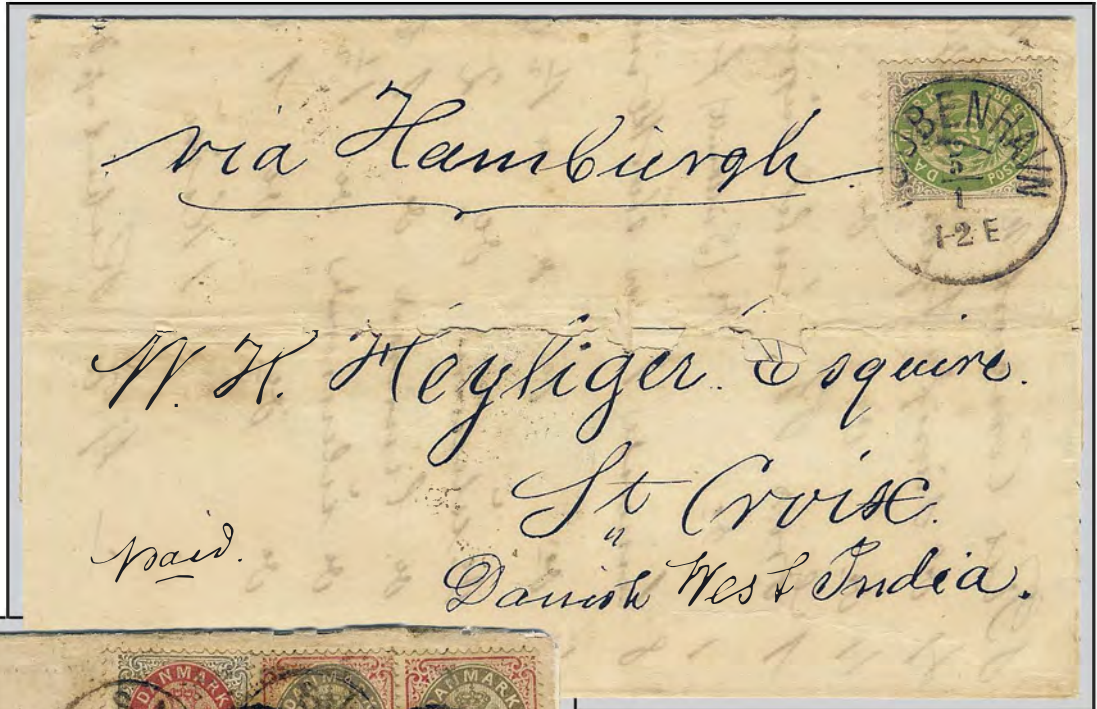 via Hamburgh
DANMARK
POST
KJØBENHAVN
5
1
1-2 E
W. H. Heyliger. Esquire.
St Croix.
Danish West India.
paid.
DANMARK
DANMARK
DANMARK